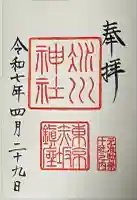 奉拝
氷川神社
東京赤坂鎮座
令和七年四月二十九日